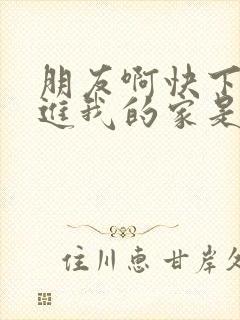 朋友啊快下
进我的家是
住川惠甘岸久